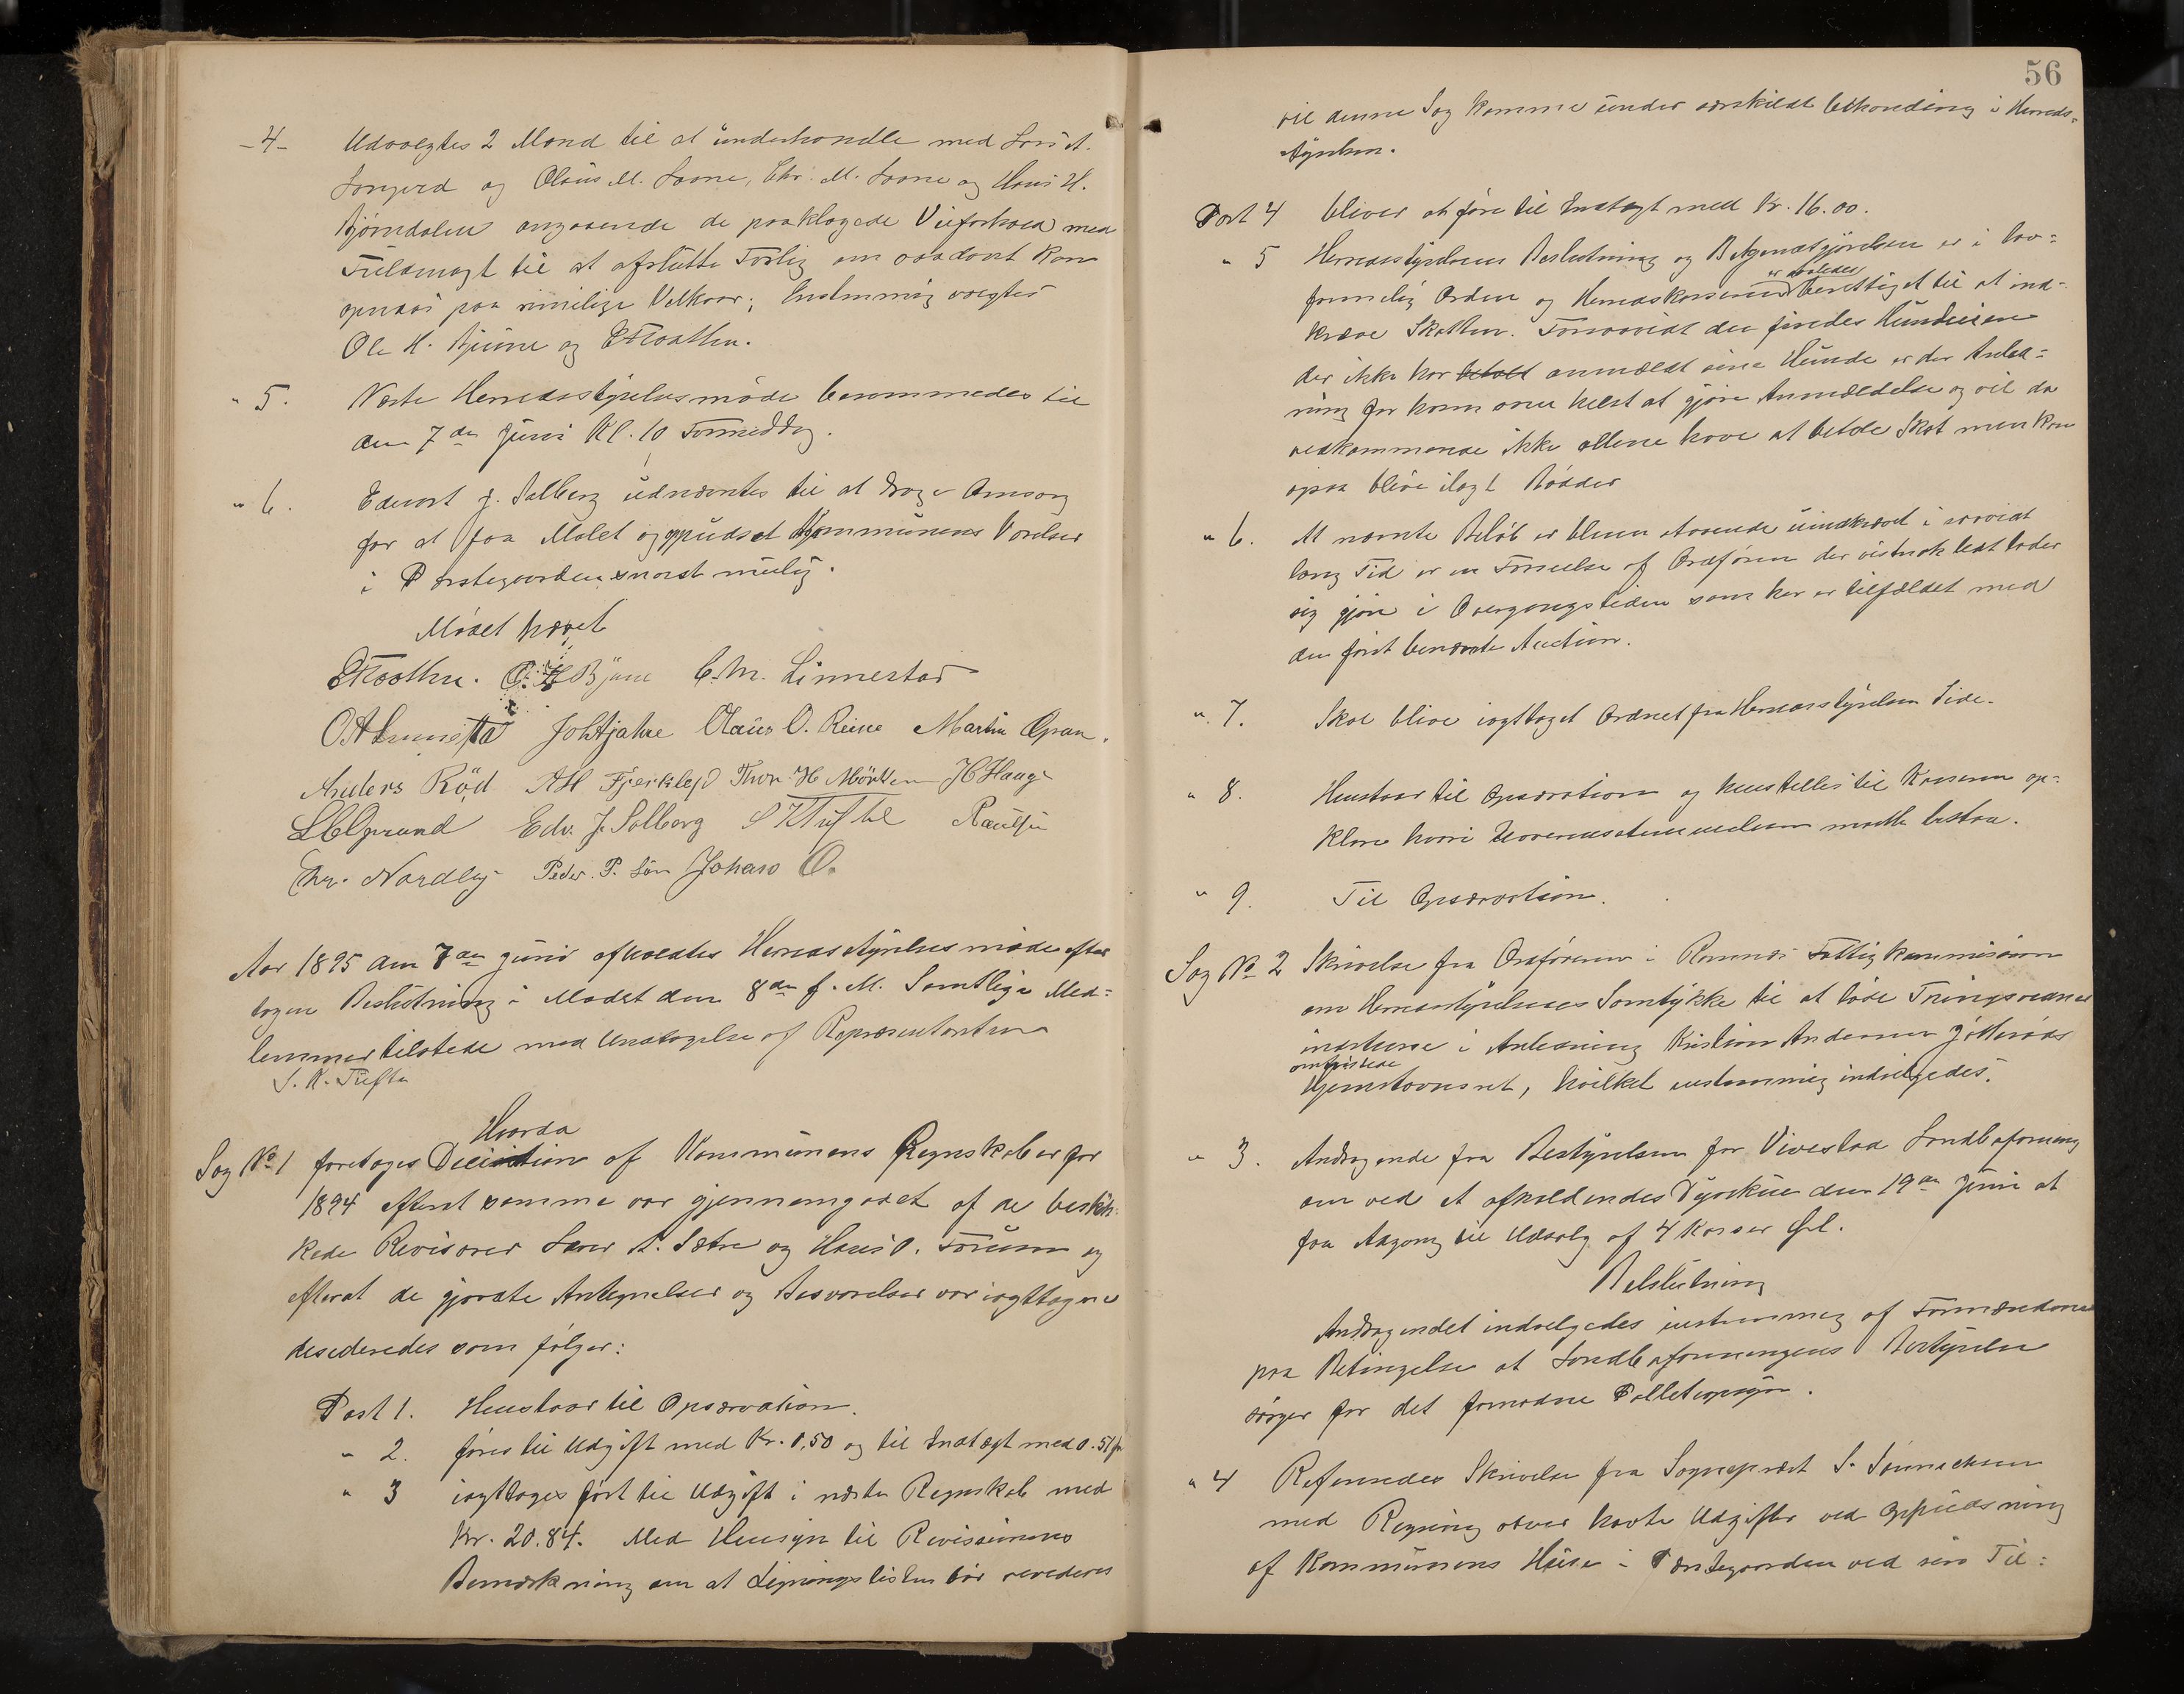 - 4 - Udvalgtes 2 Mænd til at underhandle med Lars A.
og Olaus M. Saane, Chr. M. Saane og Hans H.
Bjørndalen angaaende de paaklagede Veiforhold med
Fuldmagt til at afslutte Forlig om saadant kan
opnaas paa rimelige Velkaar; Enstemmig valgtes
Ole H. Bjune og
" 5. Næste Herredsstyrelsesmøde berammedes til
den 7de Juni Kl. 10 Formiddag.
" 6. Edvart J. Solberg udnævntes til at drage Omsorg
for at faa Malet og oppudset Kommunens Værelser
i Præstegaarden snarest mulig.
Mødet hævet
O. H. Bjune C. M. Linnestad
Olaus O. Reine Martin Gran.
Anders Röd AH Thor. H H Hauge
Edv. J. Solberg S K Tufte Paulsen
Chr. Nordby Peder. P. Søn Johan O.
Aar 1895 den 7de Juni afholdtes Herredsstyrelsesmøde efter
tagen Beslutning i Mødet den 8de f. M. Samtlige Med-
lemmer tilstede med Undtagelse af Repræsentanten
S. K. Tufte
Hvorda
Sag No 1 foretoges Decision af Kommunens Regnskaber for
1894 efterat samme var gjennemgaaet af de beskik-
kede Revisorer Lars A. Sætre og Hans O. Forum og
efterat de gjorte Antegnelser og Besvarelser var iagttagne
desideredes som følger:
Post 1. Henstaar til Opservation.
" 2. føres til Udgift med Kr. 0,50 og til Indtægt med 0.51
" 3 iagttages ført til Udgift i næste Regnskab med
Kr. 20.84. Med Hensyn til Revisionens
Bemærkning om at Ligningslisten bør revideres
56
vil denne Sag komme under særskildt behandling i Herreds-
styrelsen.
Post 4 bliver at føre til Indtægt med Kr. 16.00.
" 5 Herredsstyrelsens Beslutning og Bekjendtgjørelsen er i lov-
er saaledes
formelig Orden og Herredskassereren berettiget til at ind-
kræve Skatten. Forsaavidt der findes Hundeeiere
der ikke har betalt anmeldt sine Hunde er der Anled-
ning for hvem som helst at gjøre Anmeldelse og vil da
vedkommende ikke allene have at betale Skat men kan
ogsaa blive ilagt Bødder
" 6. At nævnte Beløb er bleven staaende uindkrævet i saavidt
lang Tid er en Forseelse af Ordføren der vistnok let lader
sig gjøre i Overgangstiden som her er tilfældet med
den først benævnte Auction.
" 7. Skal blive iagttaget Ordnet fra Herredsstyrelsens Side.
" 8. Henstaar til Opservation og henstilles til Kasseren op-
klare hvori Uoverensstemmelsen maatte bestaa.
" 9. Til Opservation.
Sag No 2 Skrivelse fra Ordføreren i Ramnæs Fattigkommission
om Herredsstyrelsens Samtykke til at lade Tvingsvidner
indstevne i Anledning Kristian Andersen
omtvistede
Hjemstavnsret, hvilket enstemmig indvilgedes.
" 3. Andragende fra Bestyrelsen for Vivestad Landboforening
om ved et afholdendes Dyrskue den 19de Juni at
faa Adgang til Udsalg af 4 Kasser Øl.
Beslutning
Andragendet indvilgedes enstemmig af Formændene
paa Betingelse at Landboforeningens Bestyrelse
sørger for det fornødne Politiopsyn.
" 4 Refereredes Skrivelse fra Sogneprest S. Sønnichsen
med Regning over havte Udgifter ved Oppudsning
af Kommunens Huse i Præstegaarden ved sin Til-